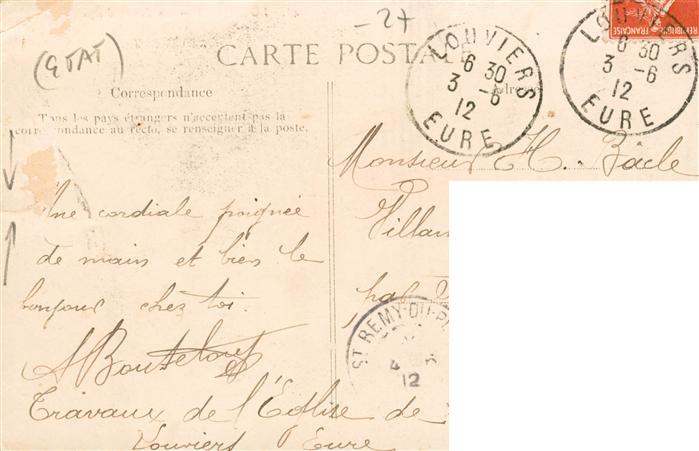 - 27
(ETAT)
CARTE POSTALE
LOUVIERS
6 30
3 -6
12
EURE
LOUVIERS
6 30
3 -6
12
EURE
RÉPUBLIQUE FRANÇAISE
Correspondance
Adresse
Tous les pays étrangers n'acceptent pas la
correspondance au recto, se renseigner à la poste.
Monsieur H. Bacle
Villa
Une cordiale poignée
de main et bien le
bonjour chez toi.
ST REMY-DU-P
4
12
Travaux de l'Eglise de
Louviers Eure